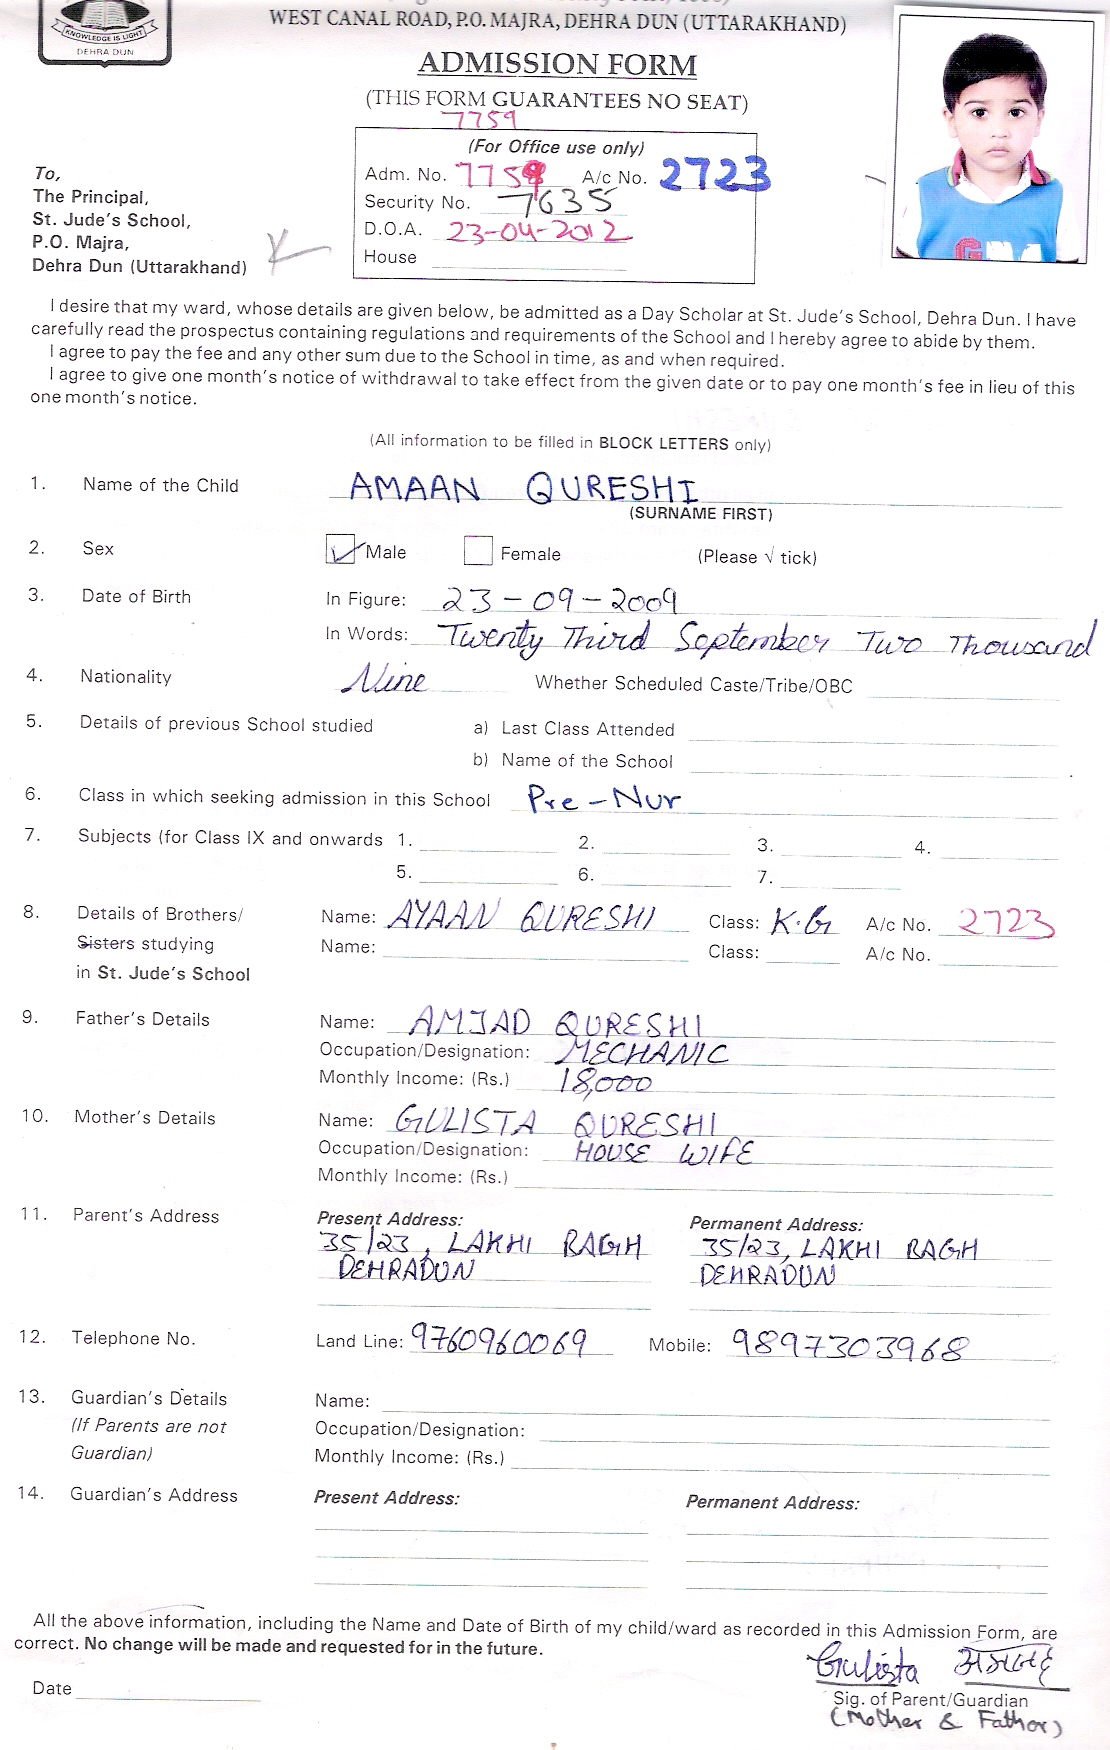 KNOWLEDGE IS LIGHT
DEHRA DUN
WEST CANAL ROAD, P.O. MAJRA, DEHRA DUN (UTTARAKHAND)
ADMISSION FORM
(THIS FORM GUARANTEES NO SEAT)
7759
(For Office use only)
Adm. No. 7759 A/c No. 2723
Security No. 7635
D.O.A. 23-04-2012
House
To,
The Principal,
St. Jude's School,
P.O. Majra,
Dehra Dun (Uttarakhand)
I desire that my ward, whose details are given below, be admitted as a Day Scholar at St. Jude's School, Dehra Dun. I have
carefully read the prospectus containing regulations and requirements of the School and I hereby agree to abide by them.
I agree to pay the fee and any other sum due to the School in time, as and when required.
I agree to give one month's notice of withdrawal to take effect from the given date or to pay one month's fee in lieu of this
one month's notice.
(All information to be filled in BLOCK LETTERS only)
1. Name of the Child AMAAN QURESHI
(SURNAME FIRST)
2. Sex Male Female (Please √ tick)
3. Date of Birth In Figure: 23-09-2009
In Words: Twenty Third September Two Thousand
4. Nationality Nine Whether Scheduled Caste/Tribe/OBC
5. Details of previous School studied a) Last Class Attended
b) Name of the School
6. Class in which seeking admission in this School Pre-Nur
7. Subjects (for Class IX and onwards 1. 2. 3. 4.
5. 6. 7.
8. Details of Brothers/ Name: AYAAN QURESHI Class: K.G A/c No. 2723
Sisters studying Name: Class: A/c No.
in St. Jude's School
9. Father's Details Name: AMJAD QURESHI
Occupation/Designation: MECHANIC
Monthly Income: (Rs.) 18,000
10. Mother's Details Name: GULISTA QURESHI
Occupation/Designation: HOUSE WIFE
Monthly Income: (Rs.)
11. Parent's Address Present Address: Permanent Address:
35/23, LAKHI BAGH 35/23, LAKHI BAGH
DEHRADUN DEHRADUN
12. Telephone No. Land Line: 9760960069 Mobile: 9897303968
13. Guardian's Details Name:
(If Parents are not Occupation/Designation:
Guardian) Monthly Income: (Rs.)
14. Guardian's Address Present Address: Permanent Address:
All the above information, including the Name and Date of Birth of my child/ward as recorded in this Admission Form, are
correct. No change will be made and requested for in the future.
Gulista अमजद
Date Sig. of Parent/Guardian
(Mother & Father)